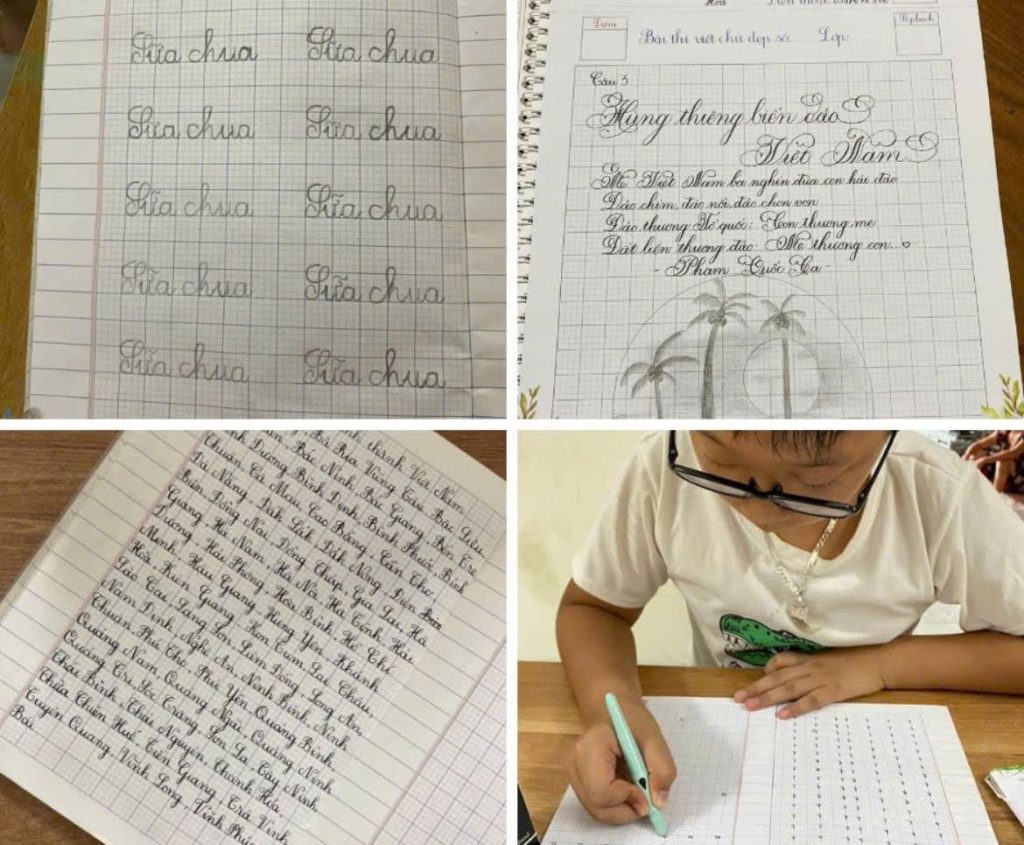 Sữa chua Sữa chua
Sữa chua Sữa chua
Sữa chua Sữa chua
Sữa chua Sữa chua
Sữa chua Sữa chua
Điểm
Số phách
Bài thi viết chữ đẹp số: Lớp:
Câu 3
Hùng thiêng biển đảo
Việt Nam
Mẹ Việt Nam ba nghìn đứa con hải đảo
Đảo chìm, đảo nổi, đảo chon von
Đảo thương Tổ quốc: Con thương mẹ
Đất liền thương đảo: Mẹ thương con...♡
- Phạm Quốc Ca -
thành Việt Nam
Bà Rịa Vũng Tàu, Bạc Liêu,
Bắc Ninh, Bắc Giang, Bến Tre
Dương, Bình Định, Bình Phước, Bình
Thuận, Cà Mau, Cao Bằng, Cần Thơ,
Đà Nẵng, Đắk Lắk, Đắk Nông, Điện
Biên, Đồng Nai, Đồng Tháp, Gia Lai, Hà
Giang, Hà Nam, Hà Nội, Hà Tĩnh, Hải
Dương, Hải Phòng, Hòa Bình, Hồ Chí
Minh, Hậu Giang, Hưng Yên, Khánh
Hòa, Kiên Giang, Kon Tum, Lai Châu,
Lào Cai, Lạng Sơn, Lâm Đồng, Long An,
Nam Định, Nghệ An, Ninh Bình, Ninh
Thuận, Phú Thọ, Phú Yên, Quảng Bình
Quảng Nam, Quảng Ngãi, Quảng Ninh
Quảng Trị, Sóc Trăng, Sơn La, Tây Ninh
Thái Bình, Thái Nguyên, Thanh Hóa,
Thừa Thiên Huế, Tiền Giang, Trà Vinh
Tuyên Quang, Vĩnh Long, Vĩnh Phú
Bái